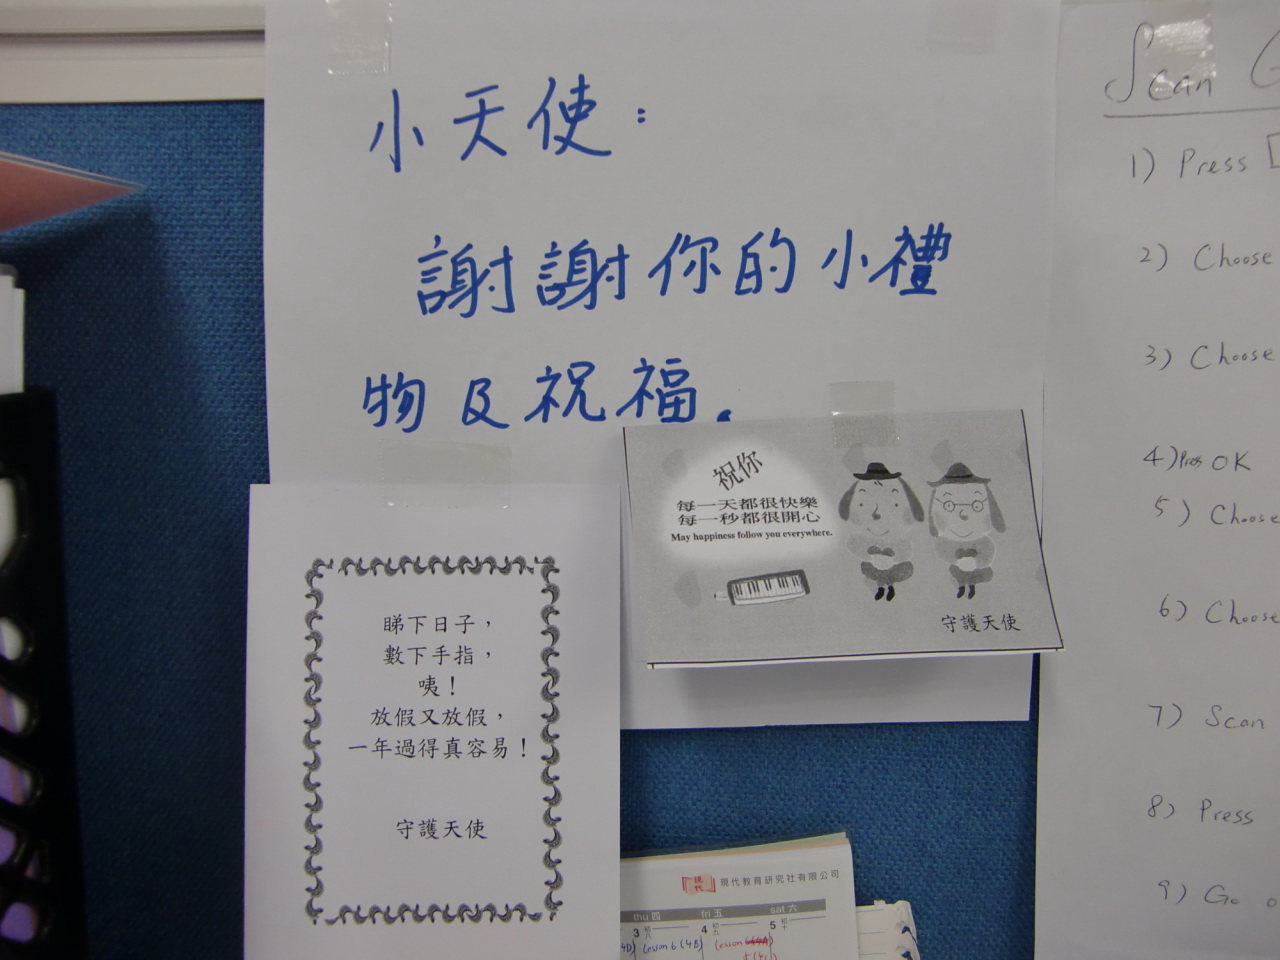 小天使：
謝謝你的小禮
物及祝福.
祝你
每一天都很快樂
每一秒都很開心
May happiness follow you everywhere.
守護天使
睇下日子，
數下手指，
咦！
放假又放假，
一年過得真容易！
守護天使
Scan
1) Press
2) Choose
3) Choose
4) Press OK
5) Choose
6) Choose
7) Scan
8) Press
9) Go
現代 現代教育研究社有限公司
thu 四 fri 五 sat 六
3 初八 4 初九 5 初十
4D) Lesson 6 (4B) (lesson